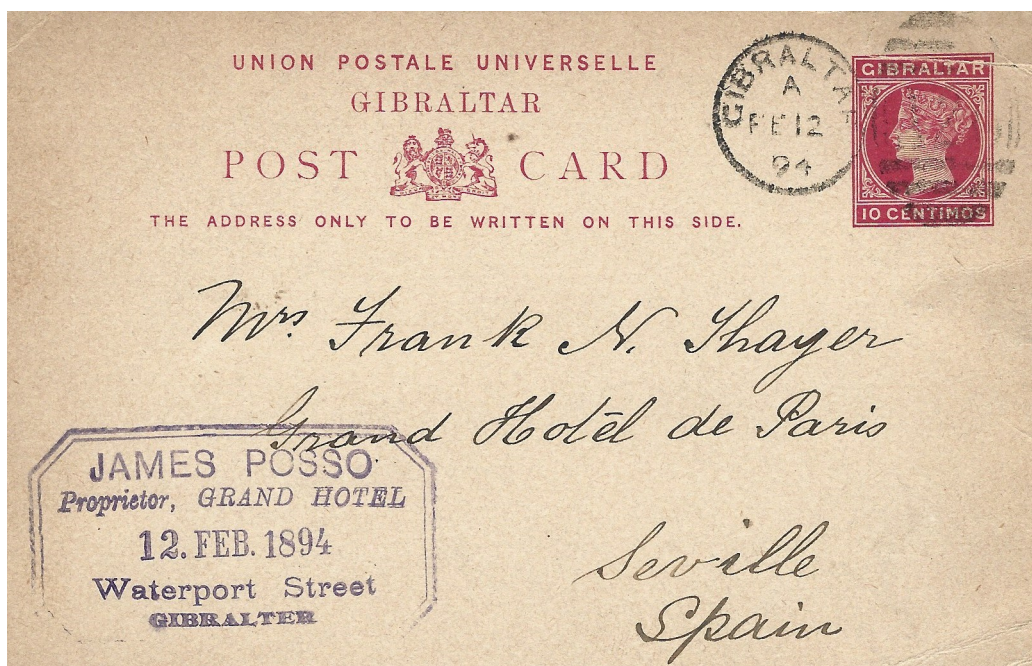 UNION POSTALE UNIVERSELLE
GIBRALTAR
POST CARD
THE ADDRESS ONLY TO BE WRITTEN ON THIS SIDE.
GIBRALTAR
A
FE 12
94
GIBRALTAR
10 CENTIMOS
Mrs Frank N. Thayer
Grand Hotēl de Paris
Seville
Spain
JAMES POSSO
Proprietor, GRAND HOTEL
12. FEB. 1894
Waterport Street
GIBRALTER